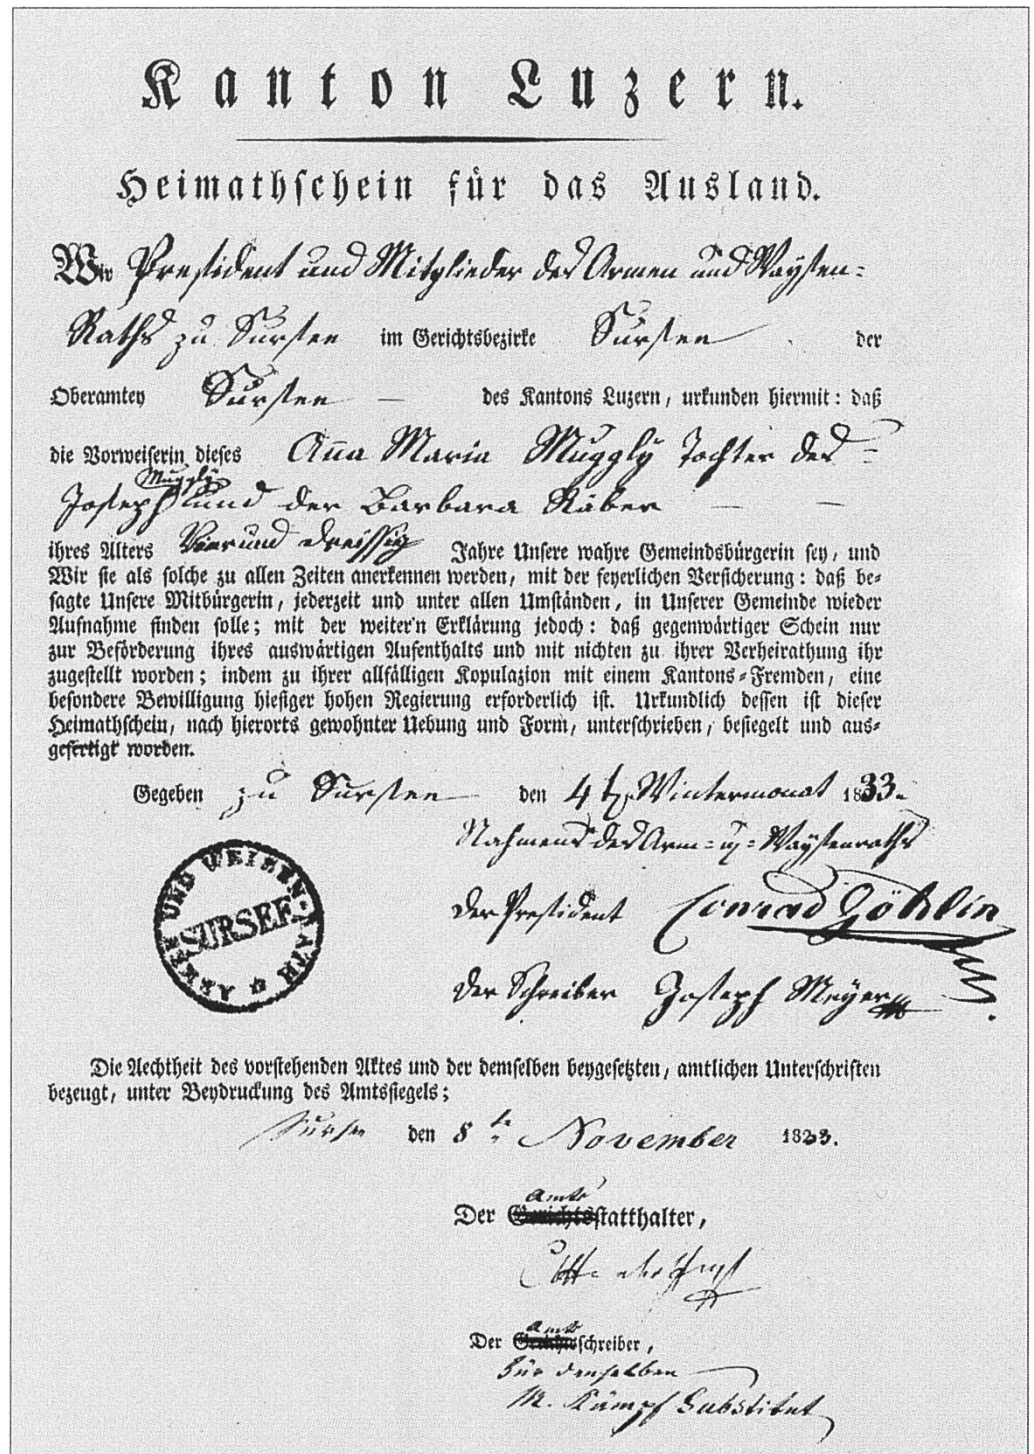 Kanton Luzern.
Heimathschein für das Ausland.
Wir President und Mitglieder des Armen und Waysen-
Raths zu Sursee im Gerichtsbezirke Sursee der
Oberamtey Sursee — des Kantons Luzern, urkunden hiermit: daß
die Vorweiserin dieses Anna Maria Muggly Tochter des
Muggly
Joseph und der Barbara Räber — —
ihres Alters Vierund dreissig Jahre Unsere wahre Gemeindsbürgerin sey, und
Wir sie als solche zu allen Zeiten anerkennen werden, mit der feyerlichen Versicherung: daß be-
sagte Unsere Mitbürgerin, jederzeit und unter allen Umständen, in Unserer Gemeinde wieder
Aufnahme finden solle; mit der weiter'n Erklärung jedoch: daß gegenwärtiger Schein nur
zur Beförderung ihres auswärtigen Aufenthalts und mit nichten zu ihrer Verheirathung ihr
zugestellt worden; indem zu ihrer allfälligen Kopulazion mit einem Kantons-Fremden, eine
besondere Bewilligung hiesiger hohen Regierung erforderlich ist. Urkundlich dessen ist dieser
Heimathschein, nach hierorts gewohnter Uebung und Form, unterschrieben, besiegelt und aus-
gefertigt worden.
Gegeben zu Sursee den 4t. Wintermonat 1833.
Nahmens des Arm- u. Waysenraths
der President Conrad Göhlin
der Schreiber Joseph Meyer
ARMEN UND WEISEN-RATH
SURSEE
Die Aechtheit des vorstehenden Aktes und der demselben beygesetzten, amtlichen Unterschriften
bezeugt, unter Beydruckung des Amtssiegels;
Sursee den 8te November 1833.
Amts
Der Gerichtsstatthalter,
Amts
Der Gerichtsschreiber,
für denselben
M. Kämpf Substitut